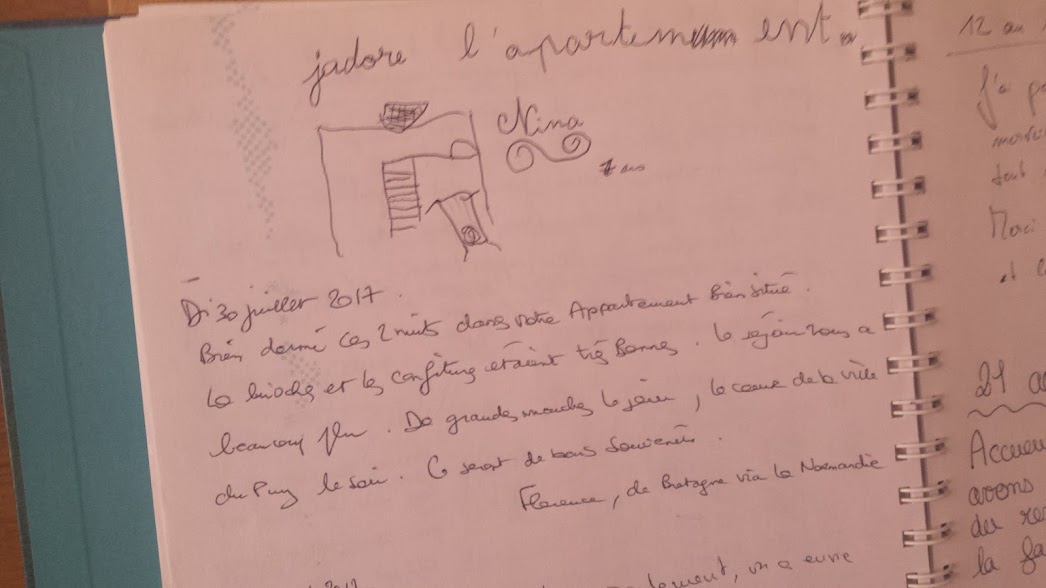 jadore l'apartement
Nina
7 ans
Di 30 juillet 2017.
Bien dormi ces 2 nuits dans votre Appartement Bien situé.
La brioche et les confitures étaient très Bonnes. Le séjour nous a
beaucoup plu. De grandes marches le jour, le coeur de la ville
du Puy le soir. Ce seront de bons souvenirs.
Florence, de Bretagne via la Normandie
on a envie
12 au
J'ai
tout
Merci
et
21
Accueil
avons
du
la